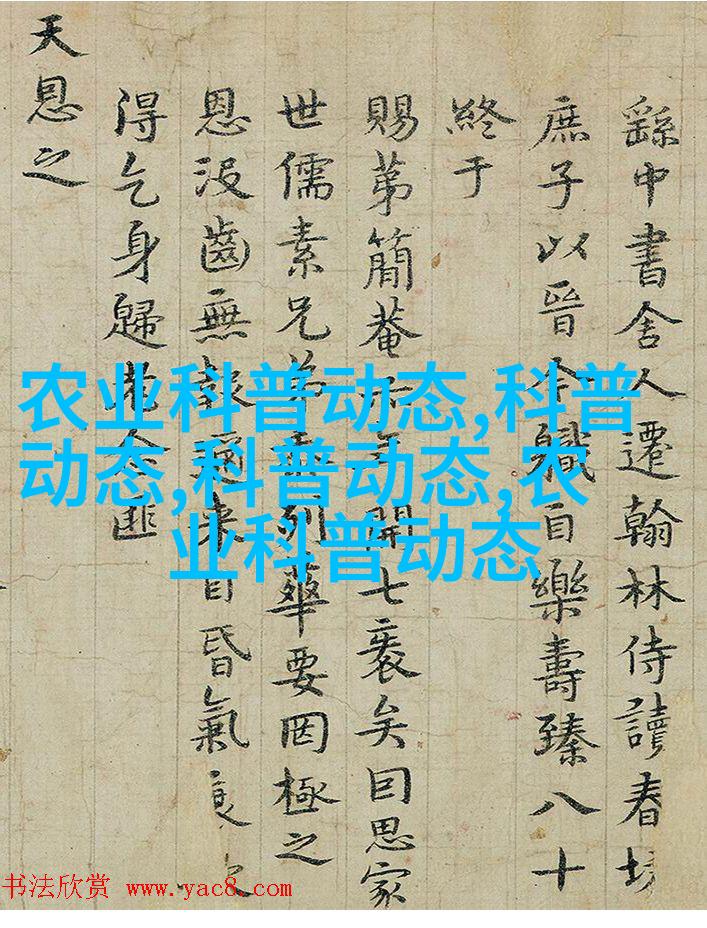 繇中書舍人遷翰林侍讀春坊
庶子以晉今職自樂壽臻八十
終于
賜第簡菴開七袠矣囙思家
世儒素兄弟列華要罔極之
恩沒齒無報邇来目昏氣衰
得乞身歸老今匪
天恩之
农业科普动态,科普
动态,科普动态,农
业科普动态
书法欣赏 www.yac8.com